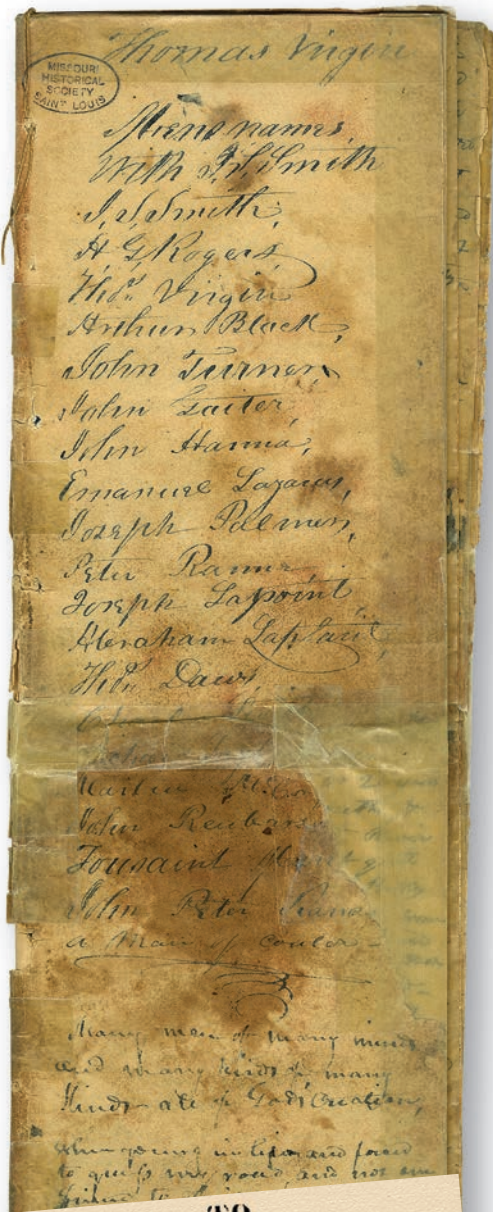 Thomas Virgin
MISSOURI
HISTORICAL
SOCIETY
SAINT LOUIS
Mens names,
With J. S. Smith
J. S. Smith,
H. G. Rogers,
Thos. Virgin
Arthur Black,
John Turner,
John Gaiter,
John Hanna,
Emanuel Lazarus,
Joseph Palmer,
Peter Ranne
Joseph Lapoint
Abraham Laplant,
Thos. Daws,
Martin
John Reubas
Tousaint
John Peter Ranne
a man of couler
Many men of many minds
and many kinds of many
Kinds all of Gods Creation,
When young in life and forced
to guess my road, and not one
friend to
TO